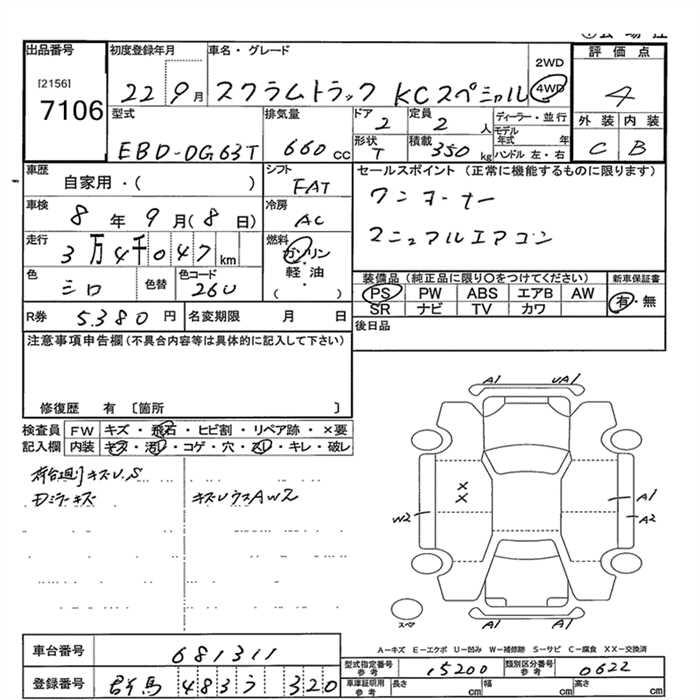 出品番号
[2156]
7106
初度登録年月
22 9月
車名・グレード
スクラムトラック KCスペシャル
2WD
4WD
評価点
4
外装 内装
C B
型式
EBD-DG63T
排気量
660cc
ドア
2
定員
2人
形状
T
積載
350kg
ディーラー・並行
モデル年式 年
ハンドル 左・右
車歴
自家用・(
シフト
FAT
車検
8年9月(8日)
冷房
AC
走行
3万4千047km
燃料
ガソリン
軽油
・
( )
色
シロ
色替
色コード
26U
R券 5.380円
名変期限 月 日
セールスポイント(正常に機能するものに限ります)
ワンオーナー
マニュアルエアコン
装備品(純正品に限り〇をつけてください)
PS PW ABS エアB AW
SR ナビ TV カワ
新車保証書
有・無
後日品
注意事項申告欄(不具合内容等は具体的に記入して下さい)
修復歴 有 〔箇所 〕
検査員 FW キズ・飛石・ヒビ割・リペア跡・×要
記入欄 内装 キズ・汚レ・コゲ・穴・スレ・キレ・破レ
荷台廻りキズU.S
Dミラーキズ
キズUウスAW2
A1 UA1
×
×
W2
A1
A2
スペア
A1 A1
A-キズ E-エクボ U-凹み W-補修跡 S-サビ C-腐食 XX-交換済
車台番号 681311
登録番号 群馬 483 う 320
型式指定番号 参考 15200
類別区分番号 参考 0622
車庫証明用 参考 長さ cm 幅 cm 高さ cm